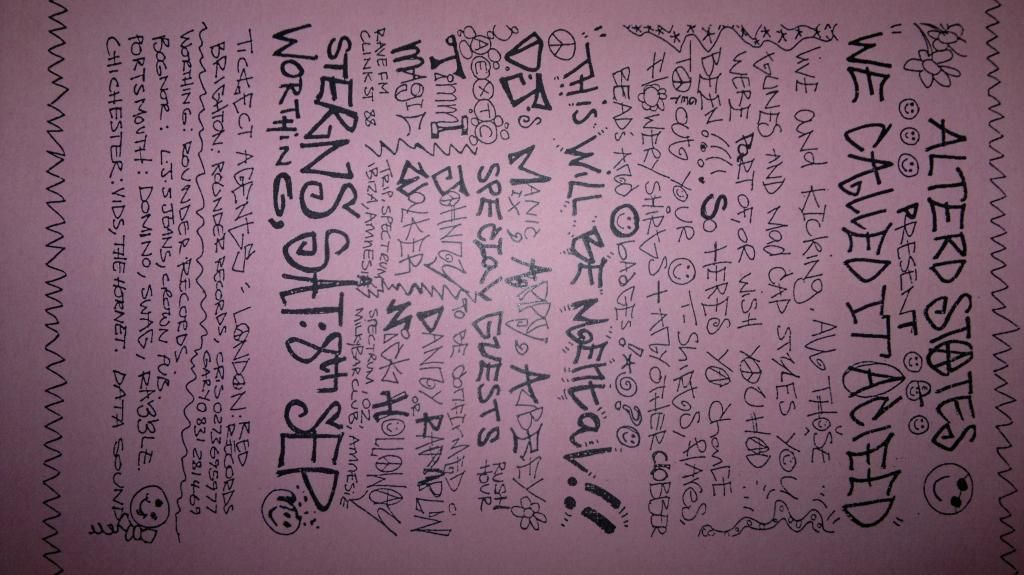 ALTERD STATES
PRESENT
"WE CALLED IT ACIEED"
LIVE and KICKING, AND THOSE
TUNES AND MAD CAP STYLES YOU
WERE PART OF OR WISH YOU HAD
BEEN!!!. SO HERES YA CHANCE
TO GET OUT YOUR T-SHIRTS, FLARES,
FLOWERY SHIRTS + ANY OTHER CLOBBER
BEADS AND BADGES!
"THIS WILL BE MENTAL!!"
DJS MANIC MAX, ANDY ABBEY
ACIEX TC SPECIAL GUESTS RUSH HOUR
TIMMI MAGIC JOHNNY WALKER DANNY RAMPLIN OR NICKY HOLLOWAY
TO BE CONFIRMED
RAVE FM CLINK ST 88
TRIP, SPECTRUM IBIZA, AMNESIA
SPECTRUM LOT, MILKY BAR CLUB, AMNESIA
STERNS SAT: 8th SEP
WORTHING,
TICKET AGENTS: LONDON: RED RECORDS
BRIGHTON: ROUNDER RECORDS, CRIS 0273695977
GARY 0831 281469
WORTHING: ROUNDER RECORDS.
BOGNOR: L.J.S JEANS, CROWN PUB.
PORTSMOUTH: DOMINO, SWAG, RABBLE.
CHICHESTER: VIDS, THE HORNET. DATA SOUND